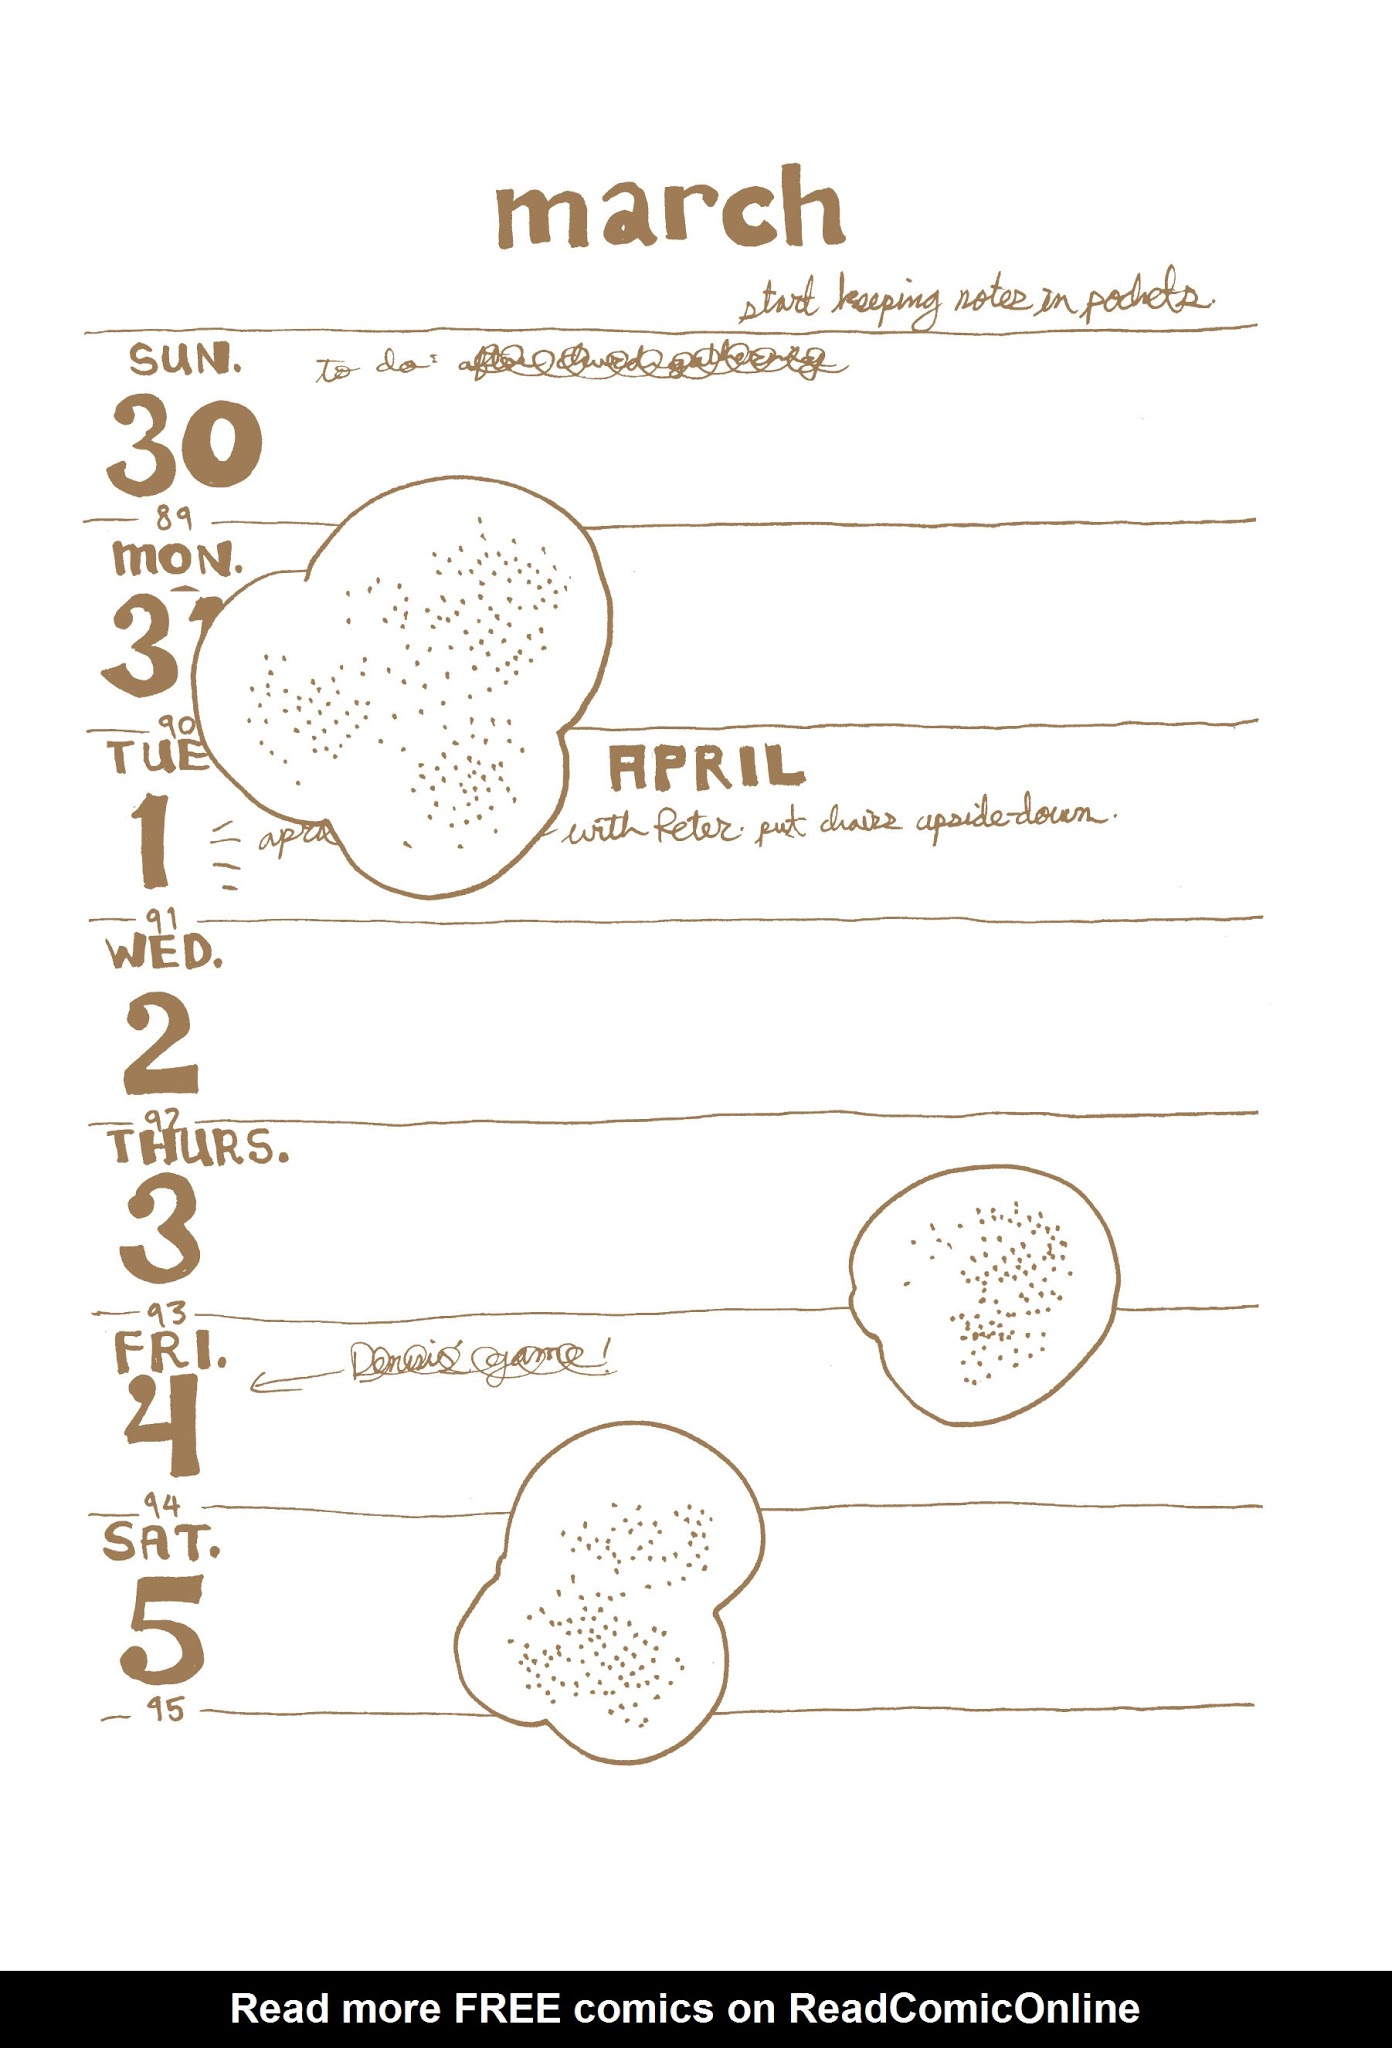 march
start keeping notes in pockets.
SUN. to do: after church gathering
30
89
MON.
31
90
TUE
APRIL
1
with Peter. put chairs upside-down.
91
WED.
2
92
THURS.
3
93
FRI. Dennis' game!
4
94
SAT.
5
95
Read more FREE comics on ReadComicOnline